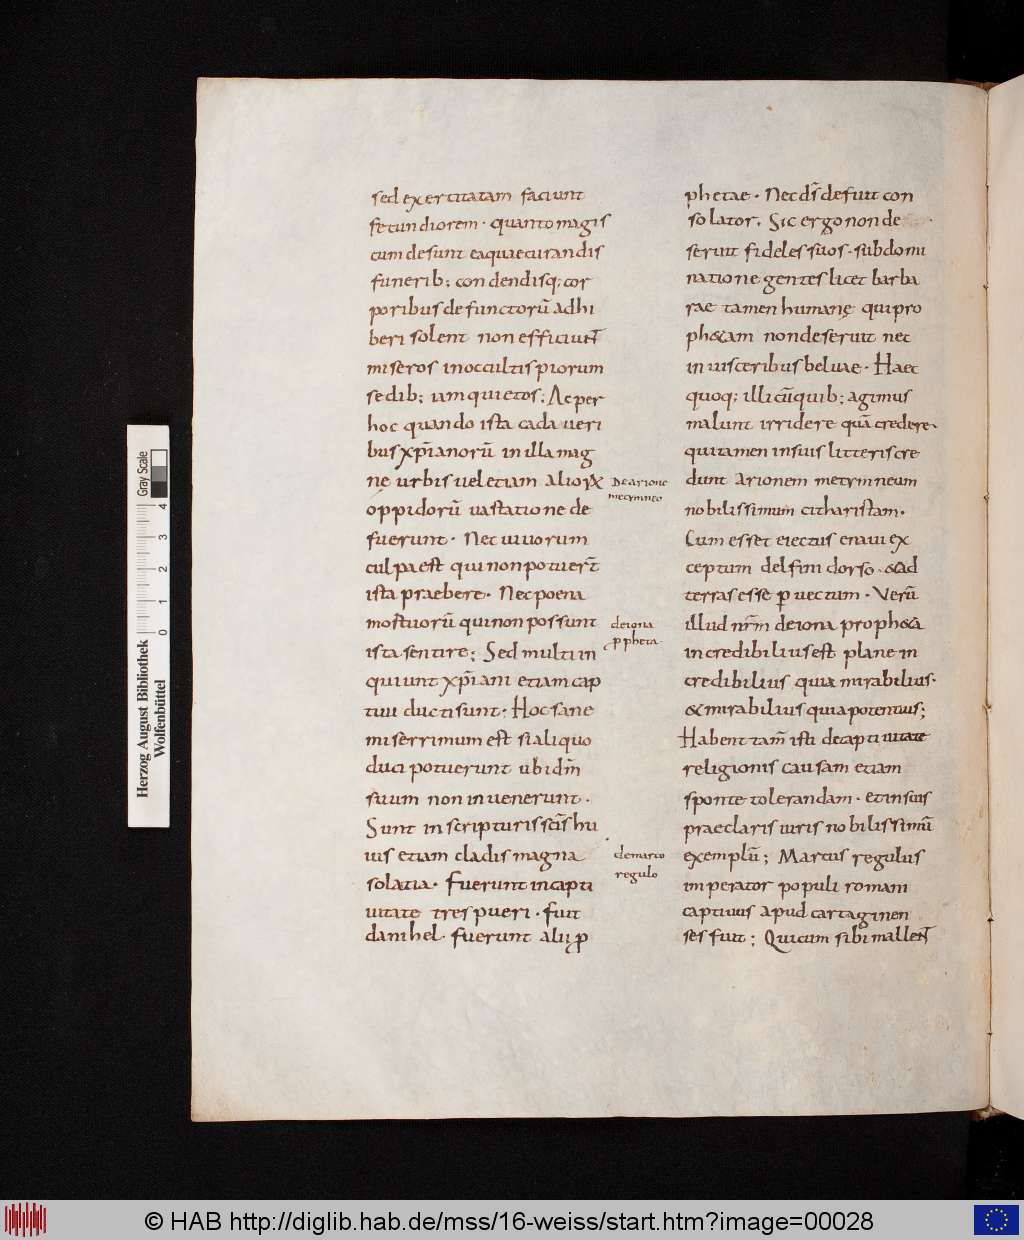 sed exercitatam faciunt
fecundiorem · quanto magis
cum desunt eaquae curandis
funerib; condendisq; cor
poribus defunctorū adhi
beri solent non efficiunt
miseros in occultis piorum
sedib; iam quietos; Ac per
hoc quando ista cadaueri
bus xp̄ianorū in illa mag
nę urbis uel etiam aliorꝝ
oppidorū uastatione de
fuerunt · Nec uiuorum
culpa est qui non potuer̄t
ista praebere · Nec poena
mortuorū qui non possunt
ista sentire; Sed multi in
quiunt xp̄iani etiam cap
tiui ducti sunt · Hoc sane
miserrimum est si aliquo
duci potuerunt ubi dm̄
suum non inuenerunt ·
Sunt in scripturis scīs hu
ius etiam cladis magna
solatia · Fuerunt in capti
uitate tres pueri · fuit
danihel · fuerunt alii ꝓ
De arione
metymneo
de iona
ꝓpheta
de marco
regulo
phetae · Nec ds̄ defuit con
solator · Sic ergo non de
seruit fideles suos · sub domi
natione gentes licet barba
rae tamen humanę qui pro
ph&am non deseruit nec
in uisceribus beluae · Haec
quoq; illi cū quib; agimus
malunt irridere quā credere ·
qui tamen in suis litteris cre
dunt Arionem metymneum
nobilissimum citharistam ·
Cum esset eiectus enaui ex
ceptum delfini dorso · &ad
terras esse ꝑuectum · Verū
illud nr̄m de iona proph&a
incredibilius est plane in
credibilius quia mirabilius ·
& mirabilius quia potentius;
Habent tam̄ isti de captiuitate
religionis causam etiam
sponte tolerandam · et in suis
praeclaris uiris nobilissimū
exemplū; Marcus regulus
imperator populi romani
captiuus apud cartaginen
ses fuit; Qui cum sibi mallent
Herzog August Bibliothek
Wolfenbüttel
0 1 2 3 4
Gray Scale
© HAB http://diglib.hab.de/mss/16-weiss/start.htm?image=00028